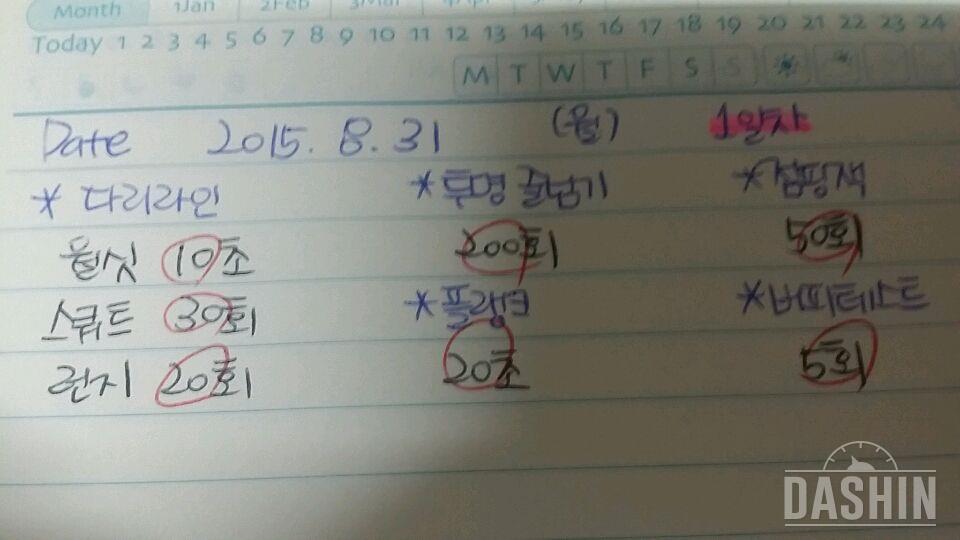 Month 1Jan 2Feb 3Mar
Today 1 2 3 4 5 6 7 8 9 10 11 12 13 14 15 16 17 18 19 20 21 22 23 24
M T W T F S S
Date 2015. 8. 31 (월) 1일차
* 다리라인 * 투명 줄넘기 * 점핑잭
월싯 10초 200회 50회
스쿼트 30회 * 플랭크 * 버피테스트
런지 20회 20초 5회
DASHIN